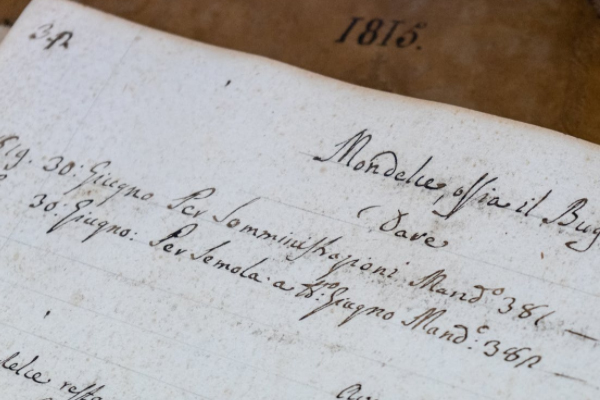 1815.
Mondelce, ossia il Bug
Dare
819. 30: Giugno Per Somministrazioni Mand.º 381 —
30: Giugno: Per Semola a Giugno Mand.º 382 —